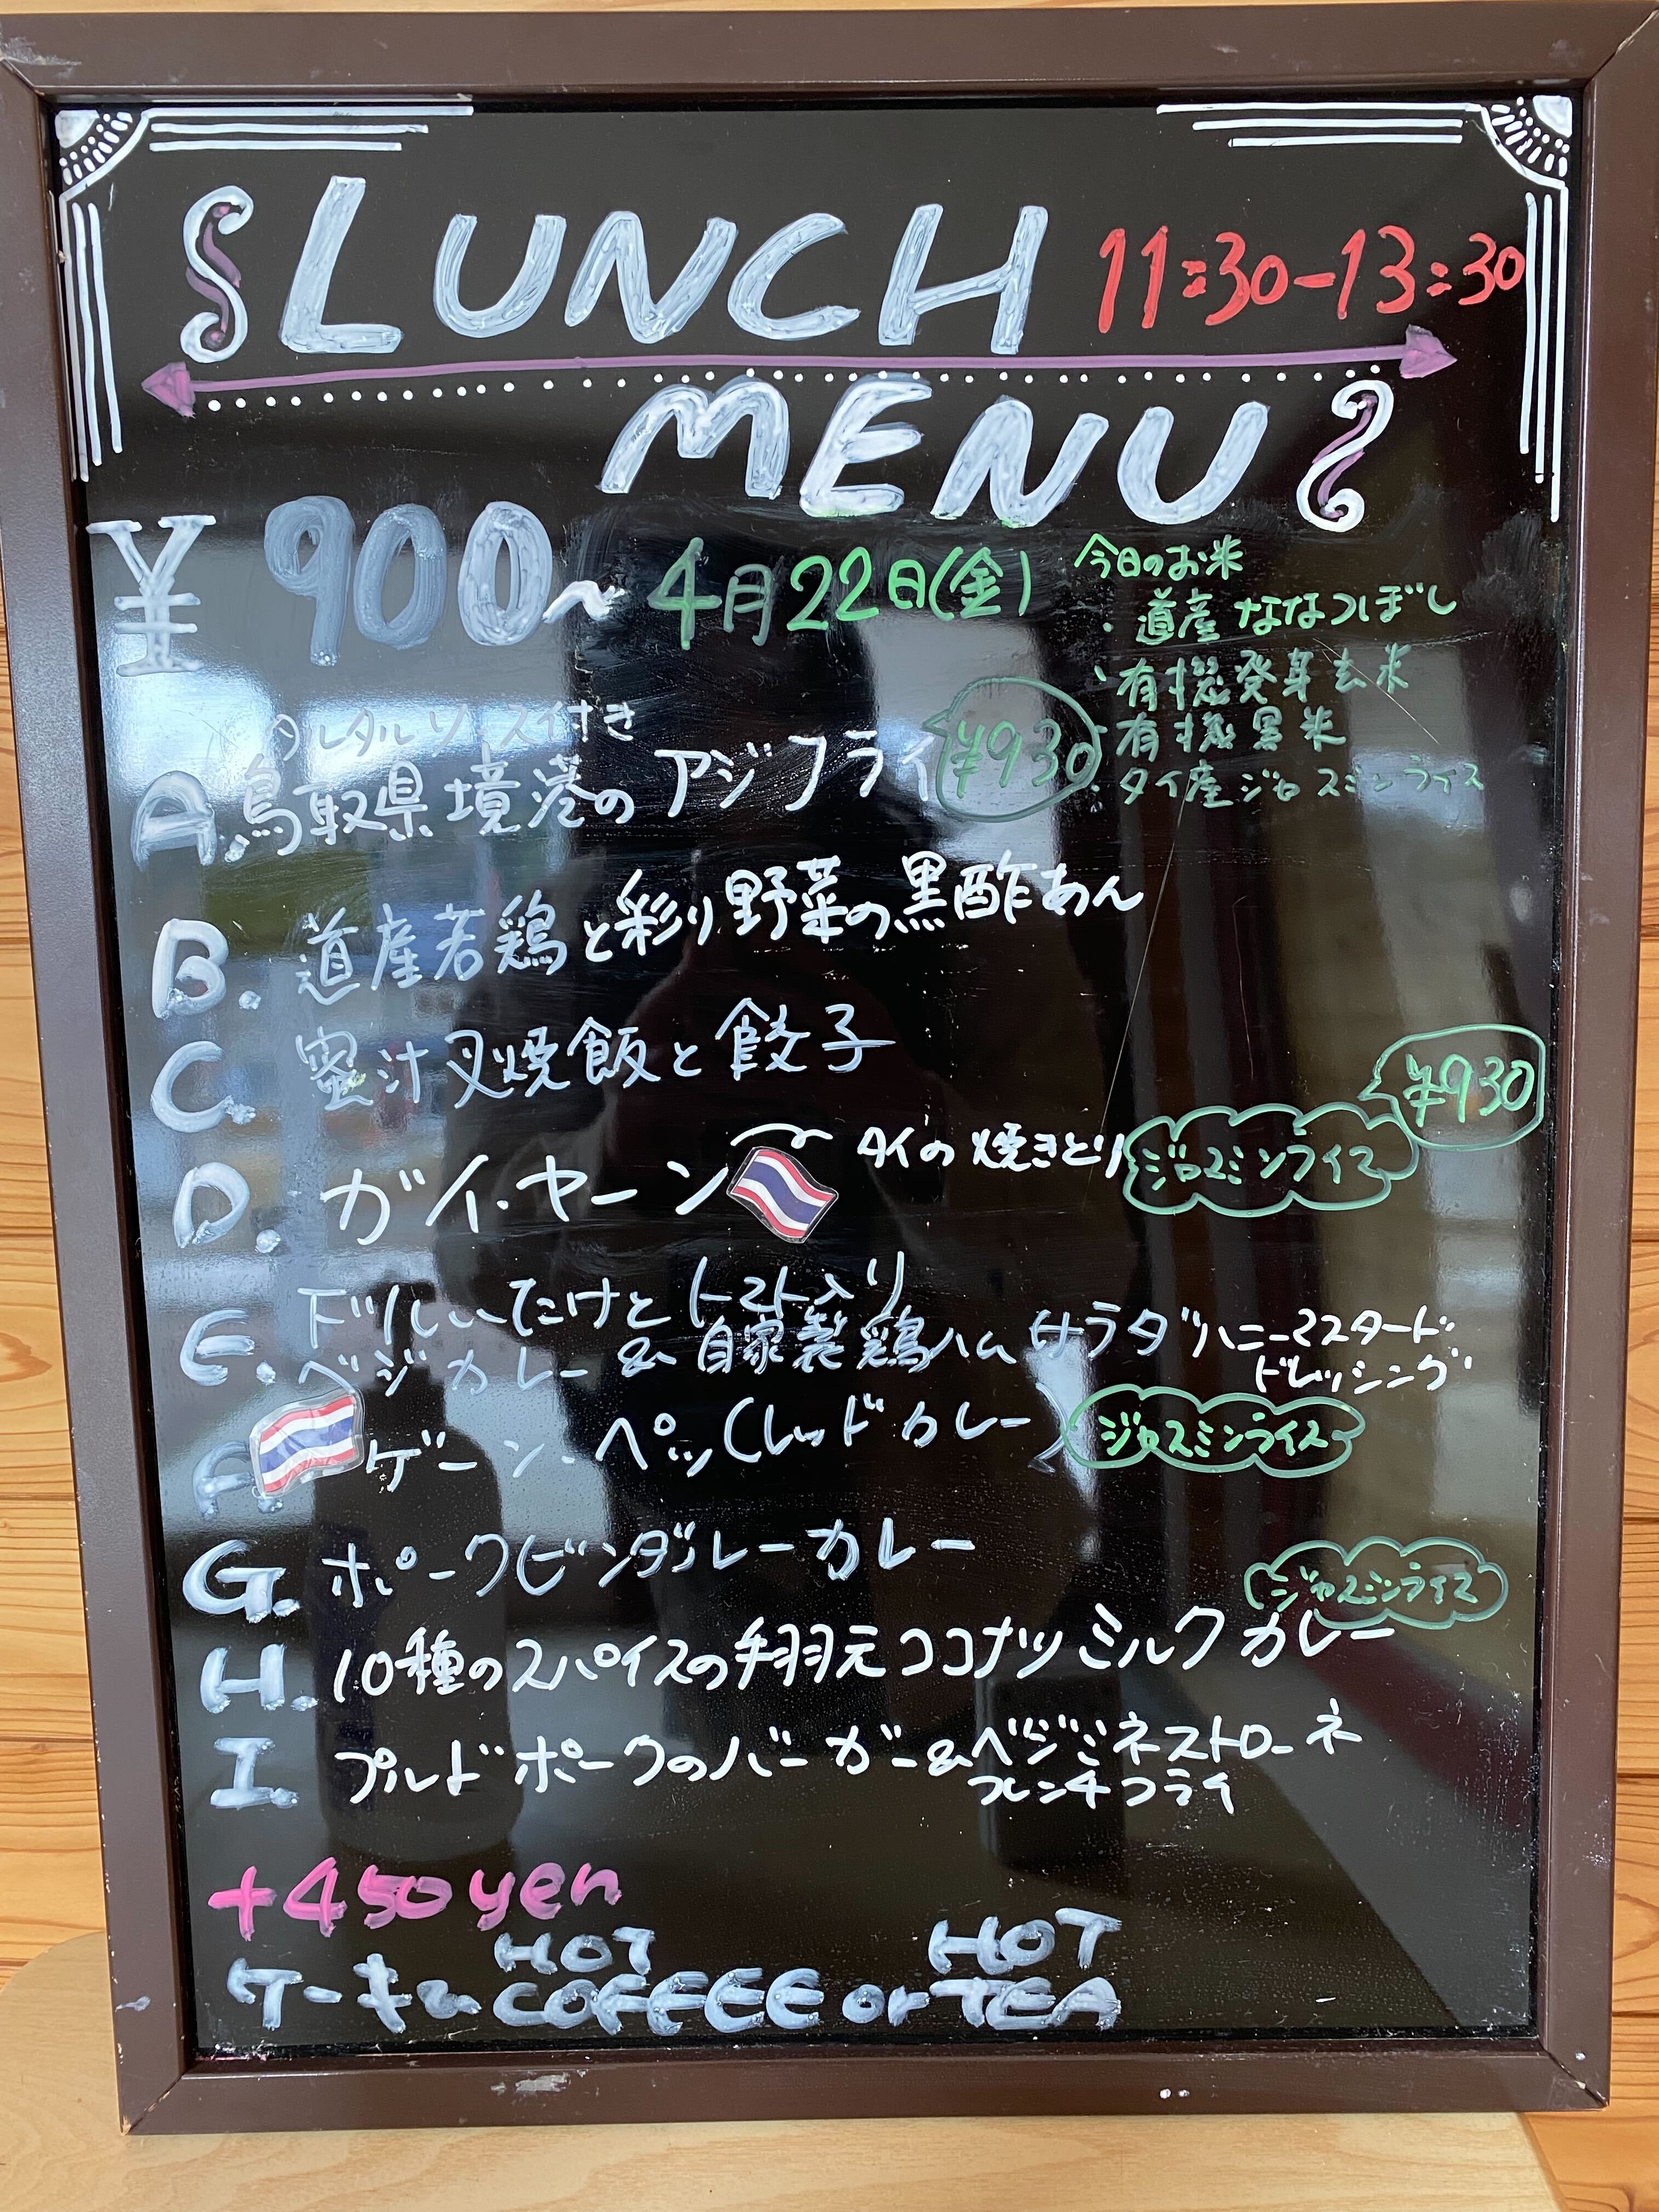 LUNCH 11:30-13:30
MENU
¥900~ 4月22日(金)
今日のお米
・道産ななつぼし
・有機発芽玄米
・有機黒米
・タイ産ジャスミンライス
タルタルソース付き
A.鳥取県境港のアジフライ ¥930
B. 道産若鶏と彩り野菜の黒酢あん
C. 蜜汁叉焼飯と餃子
D. ガイ・ヤーン タイの焼きとり ジャスミンライス ¥930
E. 下川しいたけとトマト入り
ベジカレー & 自家製鶏ハムサラダ ハニーマスタード
ドレッシング
F ゲーン・ペッ(レッドカレー) ジャスミンライス
G. ポークビンダルーカレー
ジャスミンライス
H. 10種のスパイスの手羽元ココナッツミルクカレー
I. プルドポークのバーガー&ベジミネストローネ
フレンチフライ
+450yen
HOT HOT
ケーキ COFFEE or TEA